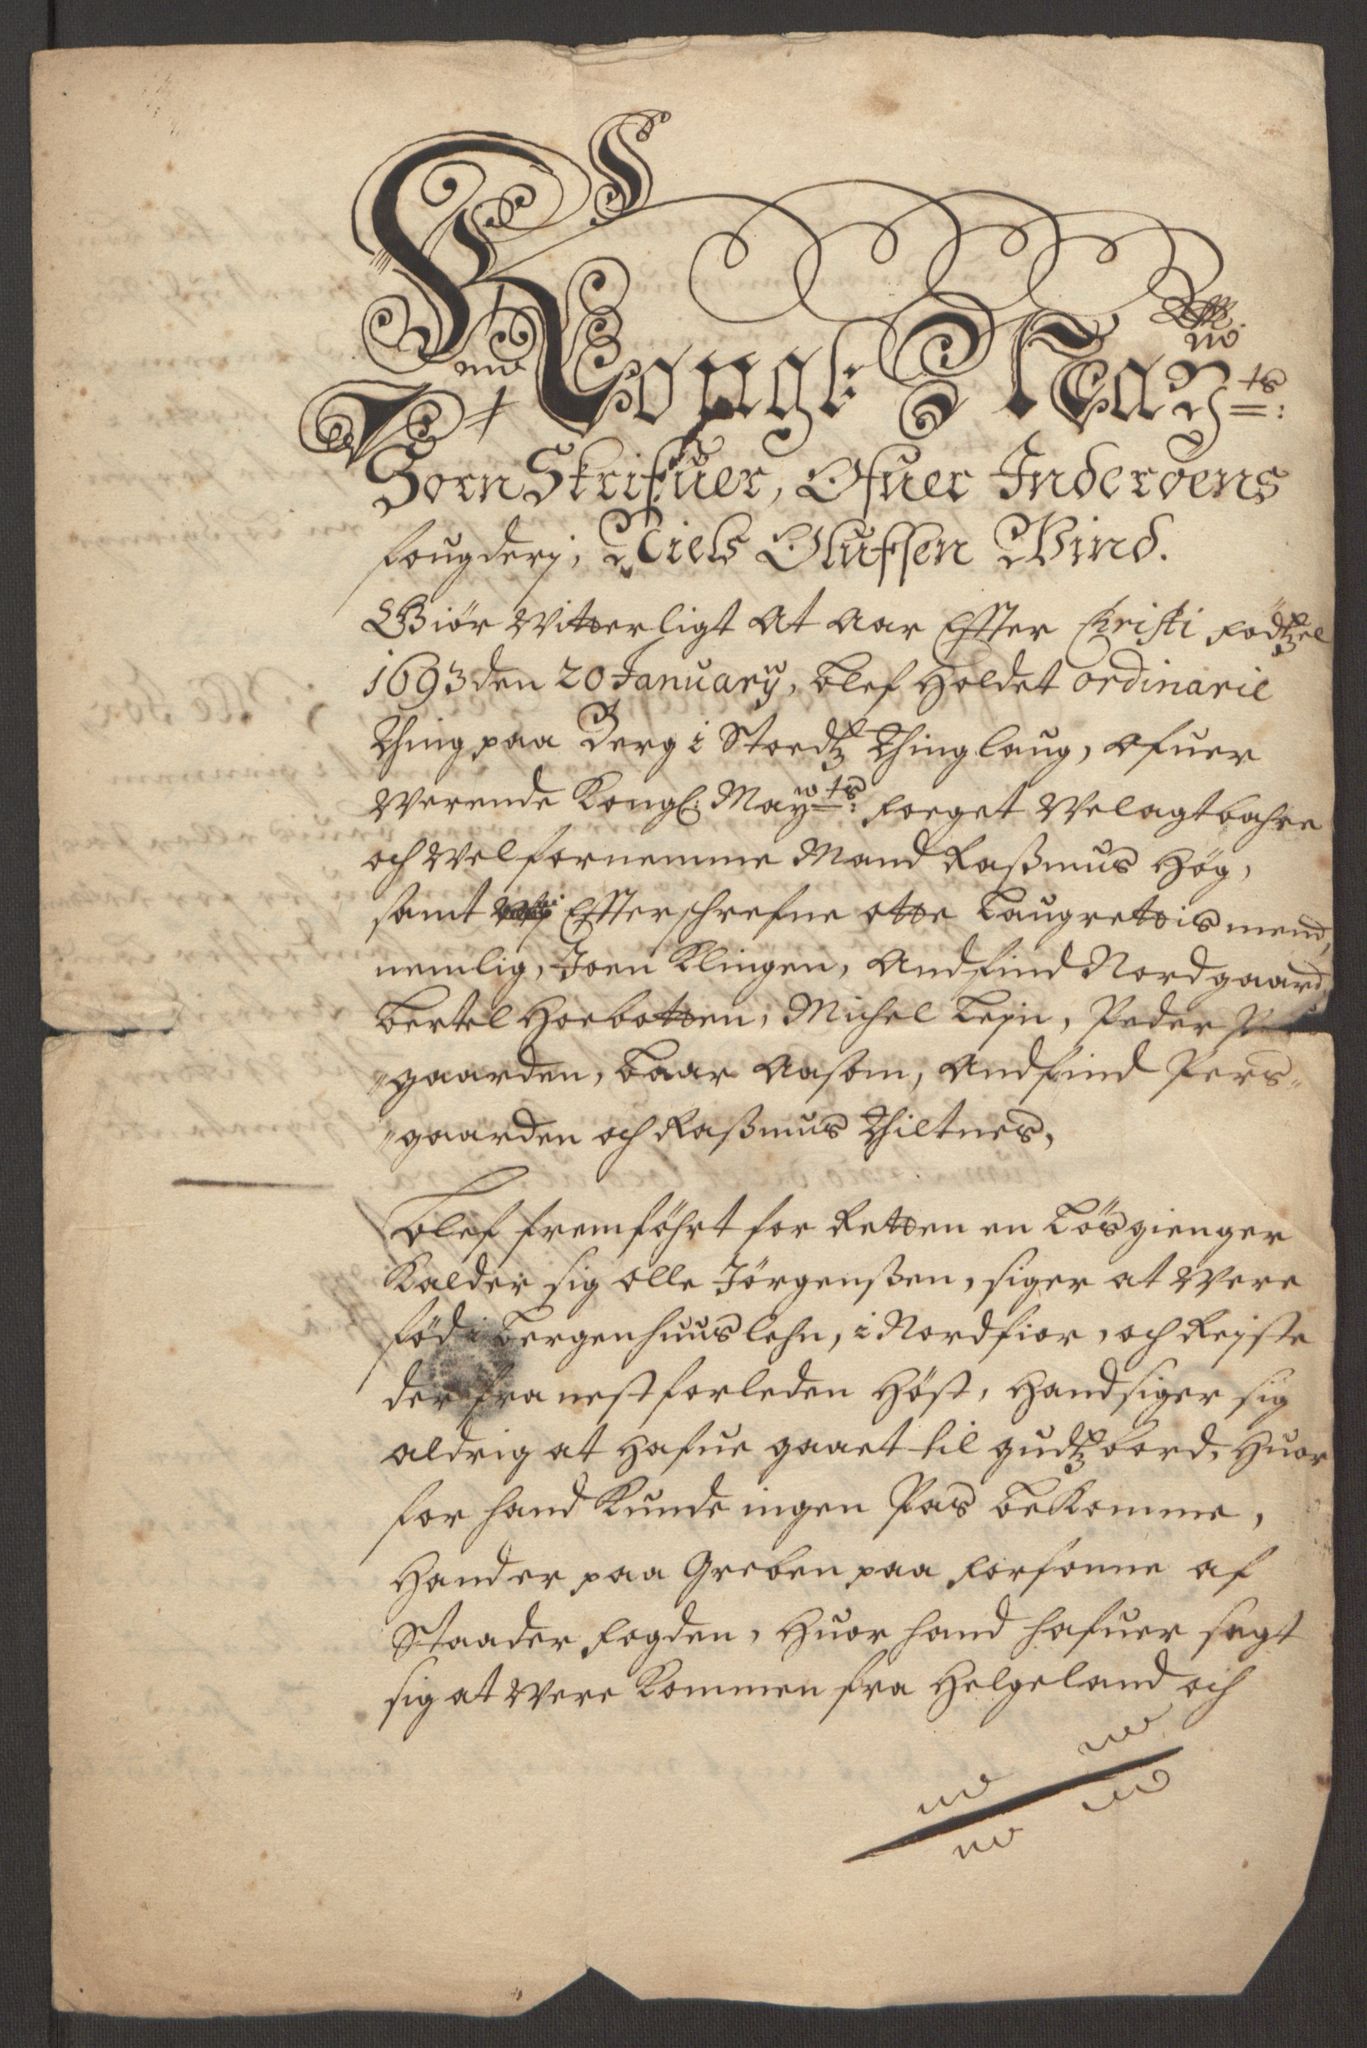 Kongl: Mayts:
SornSkrifuer, Ofuer Inderøens
fougderj, Niels Oluffsen Wind.
Giör Witterligt At Aar Effter Christi födtzel
1693 den 20 January, blef Holdet ordinarie
Thing paa Berg i Stordtz Thinglaug, ofuer
Werende Kongl: Mayts: Foeget Welagtbahre
och Welfornemme Mand Raßmus Hög,
samt Effterschrefne otte Laugrettis mend,
nemlig, Joen Klingen, Andfind Nordgaard,
Bertel Hoebotten, Michel Lejn, Peder
"gaarden, Baar Aasom, Andfind Pers-
"gaarden och Raßmus Thiltnes,
Blef fremföhrt for Retten en Lösgienger
Kalder sig Olle Jörgenßen, siger at were
föd i Bergenhuuslehn, i Nordfior, och Rejste
der fra nest forleden Höst, Hand siger sig
aldrig at Hafue gaaet til gudtz bord, Huor
for hand Kunde ingen Pas bekomme,
Hand er paa Greben paa Forsonne af
Staader fogden, Huor hand hafuer sagt
sig at Were Kommen fra Helgeland och